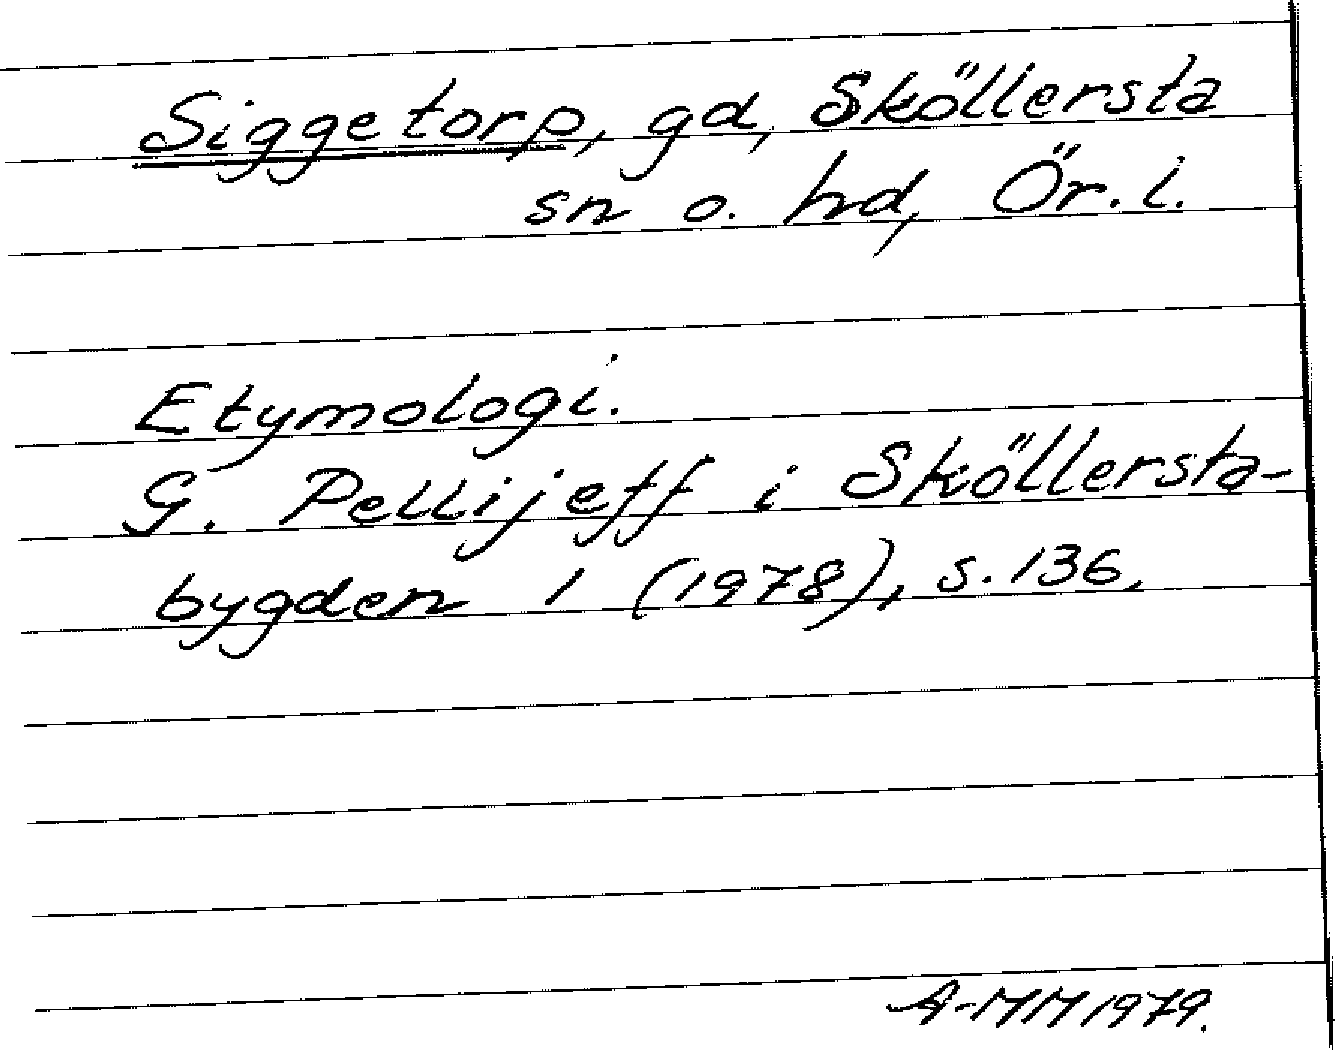 Siggetorp, gd, Sköllersta
sn o. hd, Ör. l.
Etymologi.
G. Pellijeff i Sköllersta-
bygden 1 (1978), s. 136.
A-MM 1979.